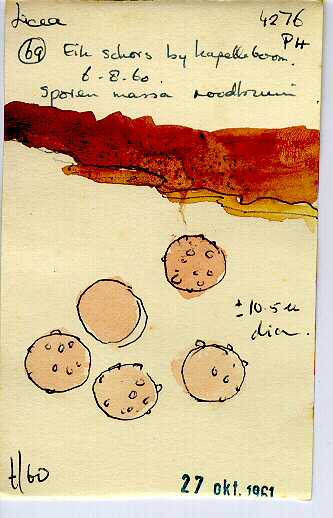 Licea 4276
PH
69 Eik schors by kapelleboom.
6-8-60
Sporen massa roodbruin
± 10.5 u
diam.
t/60
27 okt. 1961